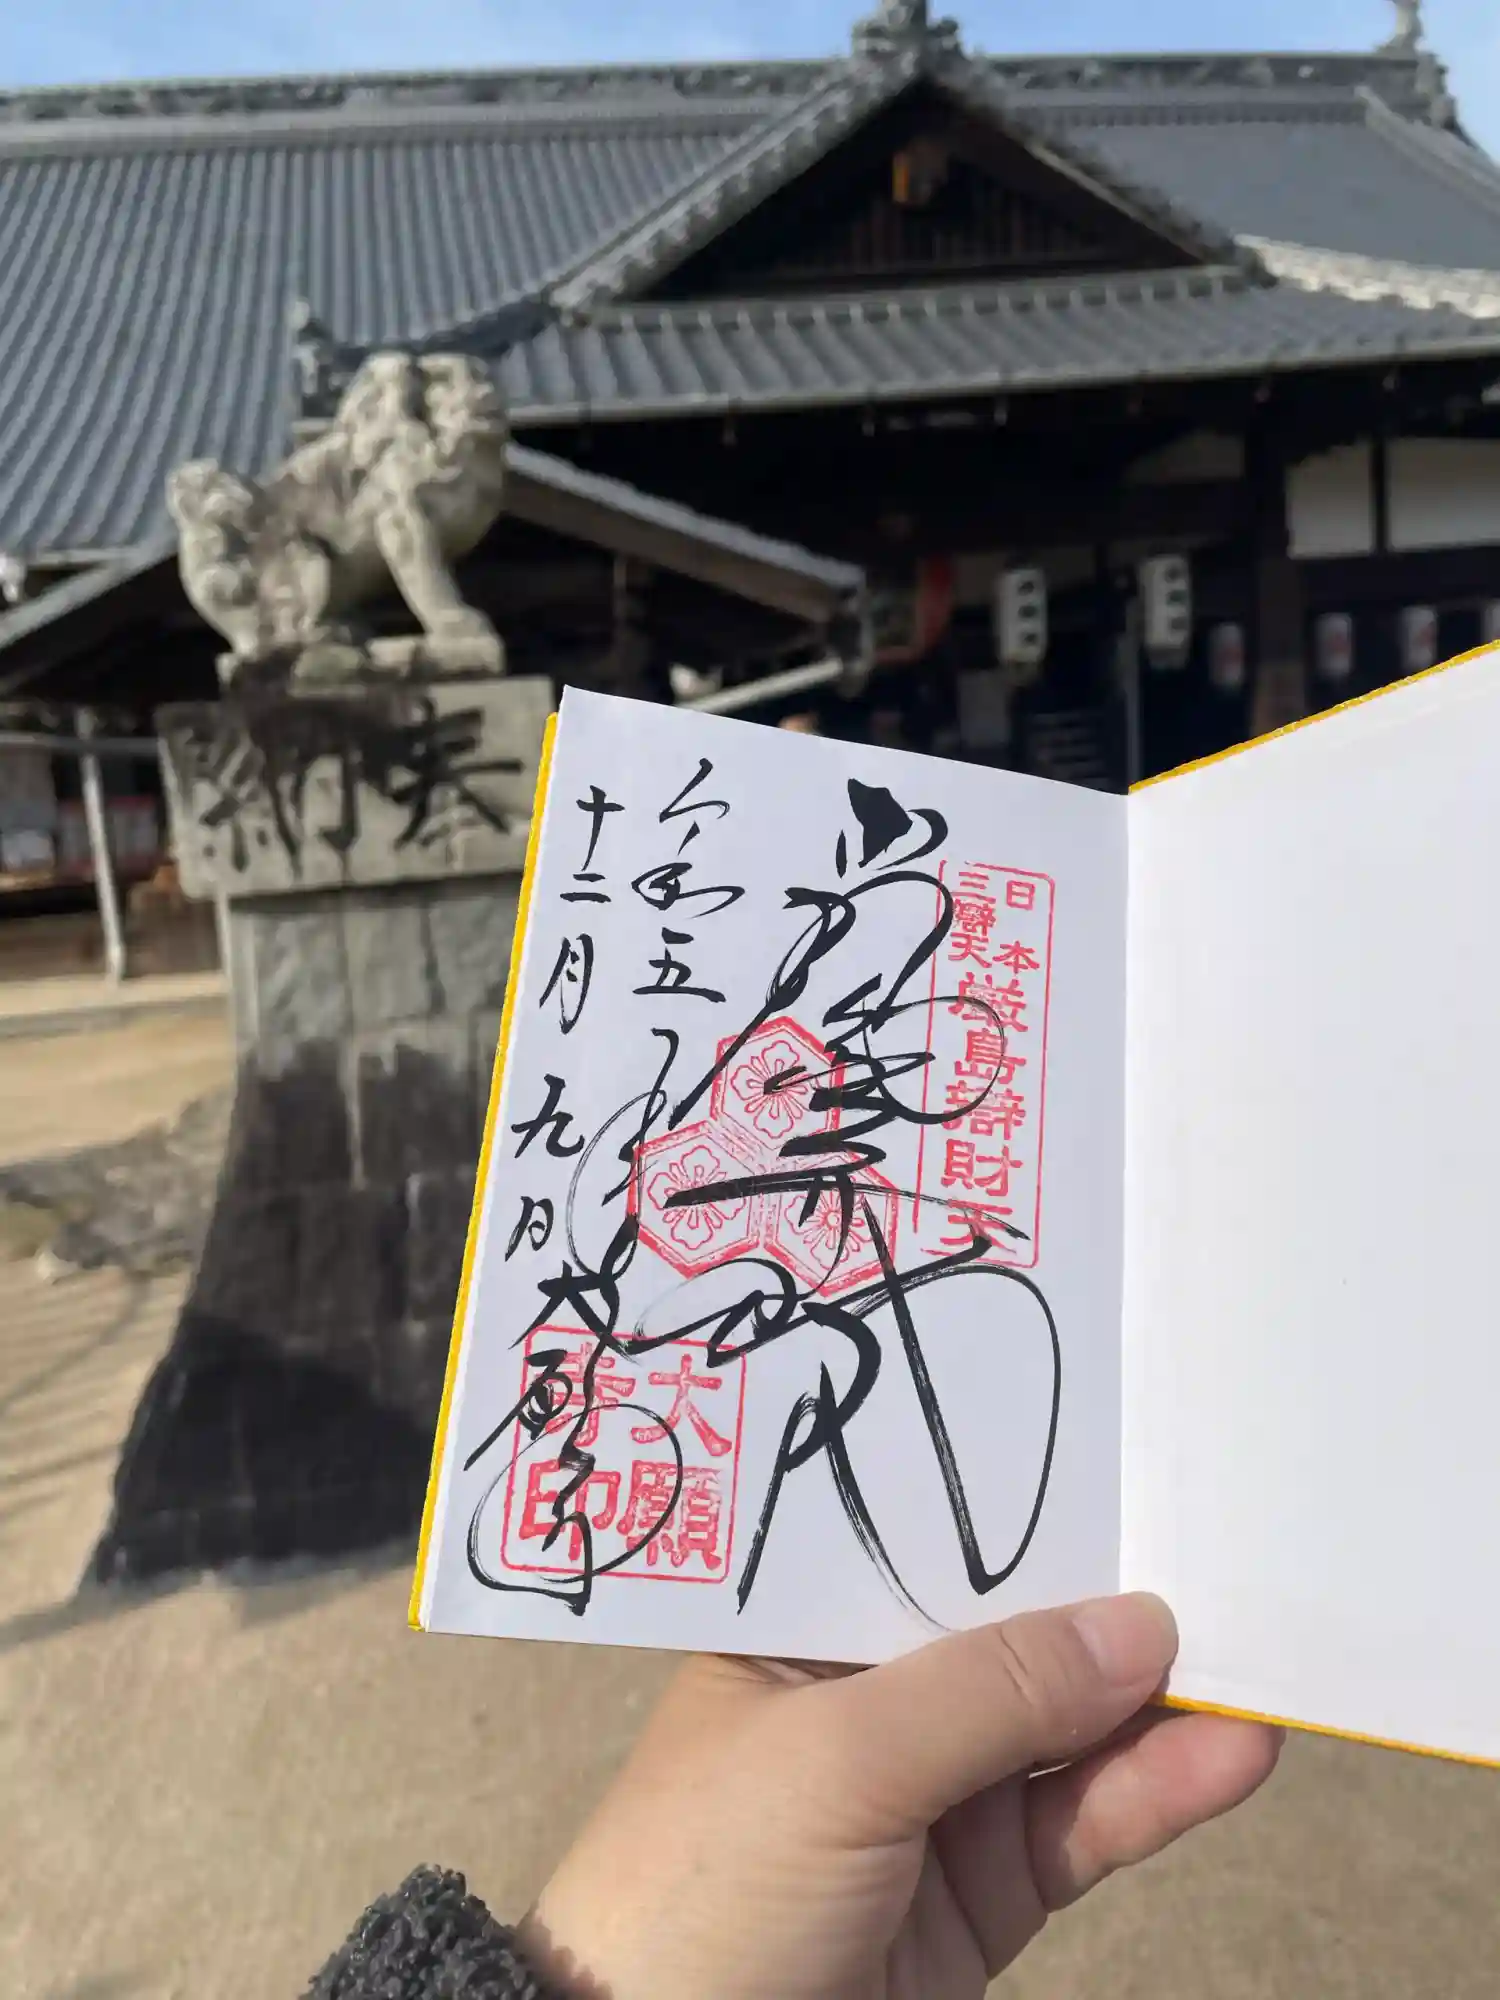 奉納
日本
三辯天
厳島辯財天
令和五年
十二月九日
大願寺
大願
寺印